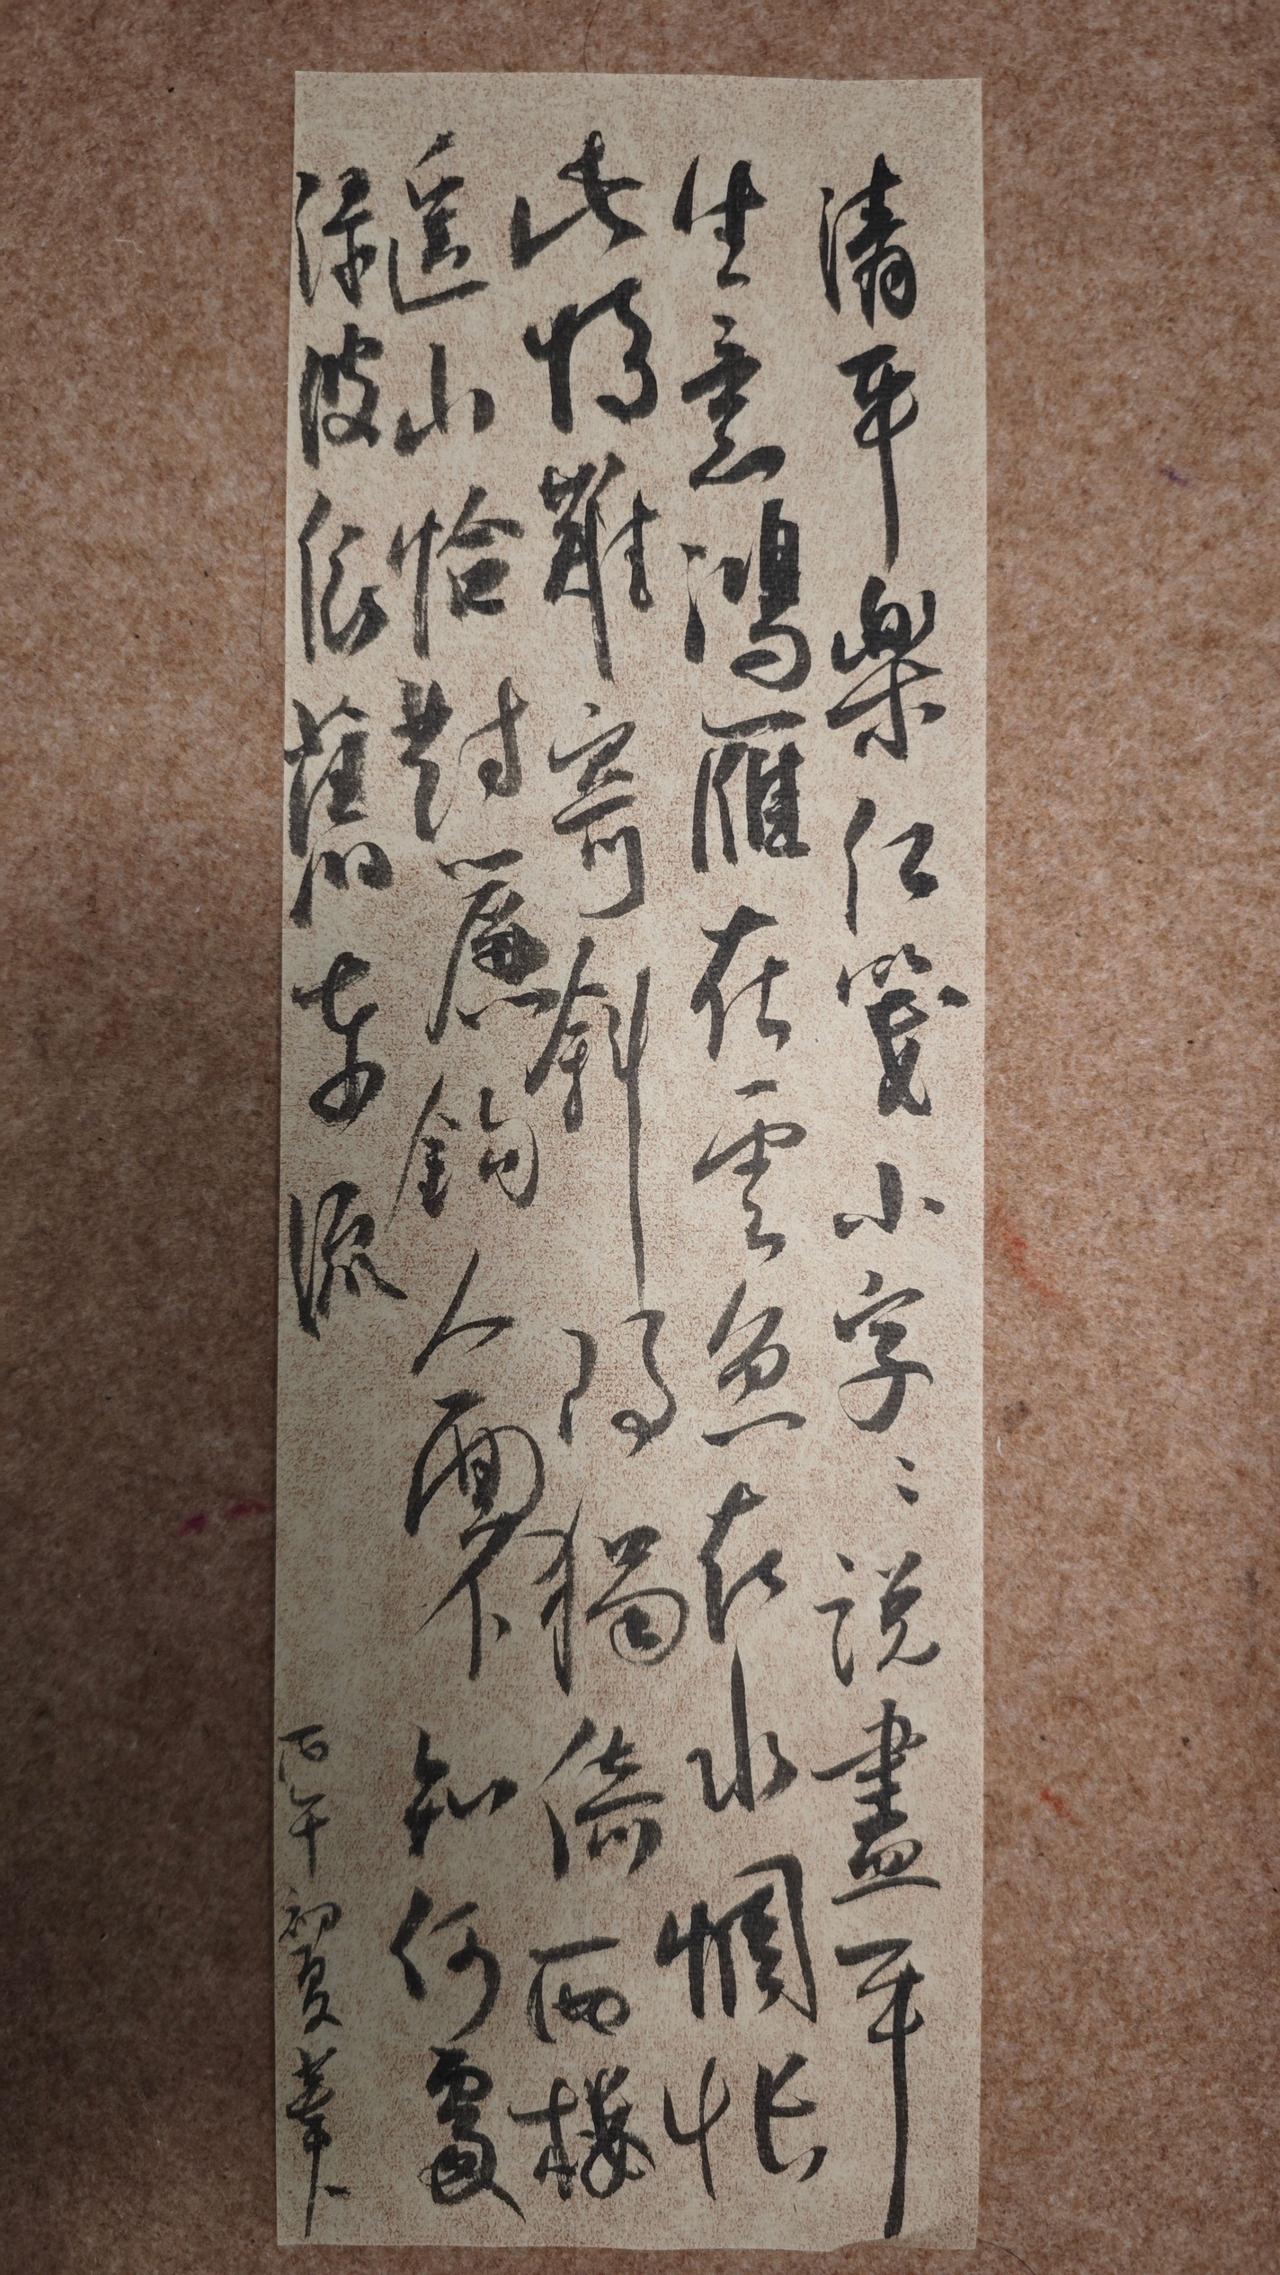 清平樂紅箋小字〻說盡平
生意鴻雁在雲魚在水惆悵
此情難寄斜陽獨倚西樓
遙山恰對簾鈎人面不知何處
綠波依舊東流
丙午初夏